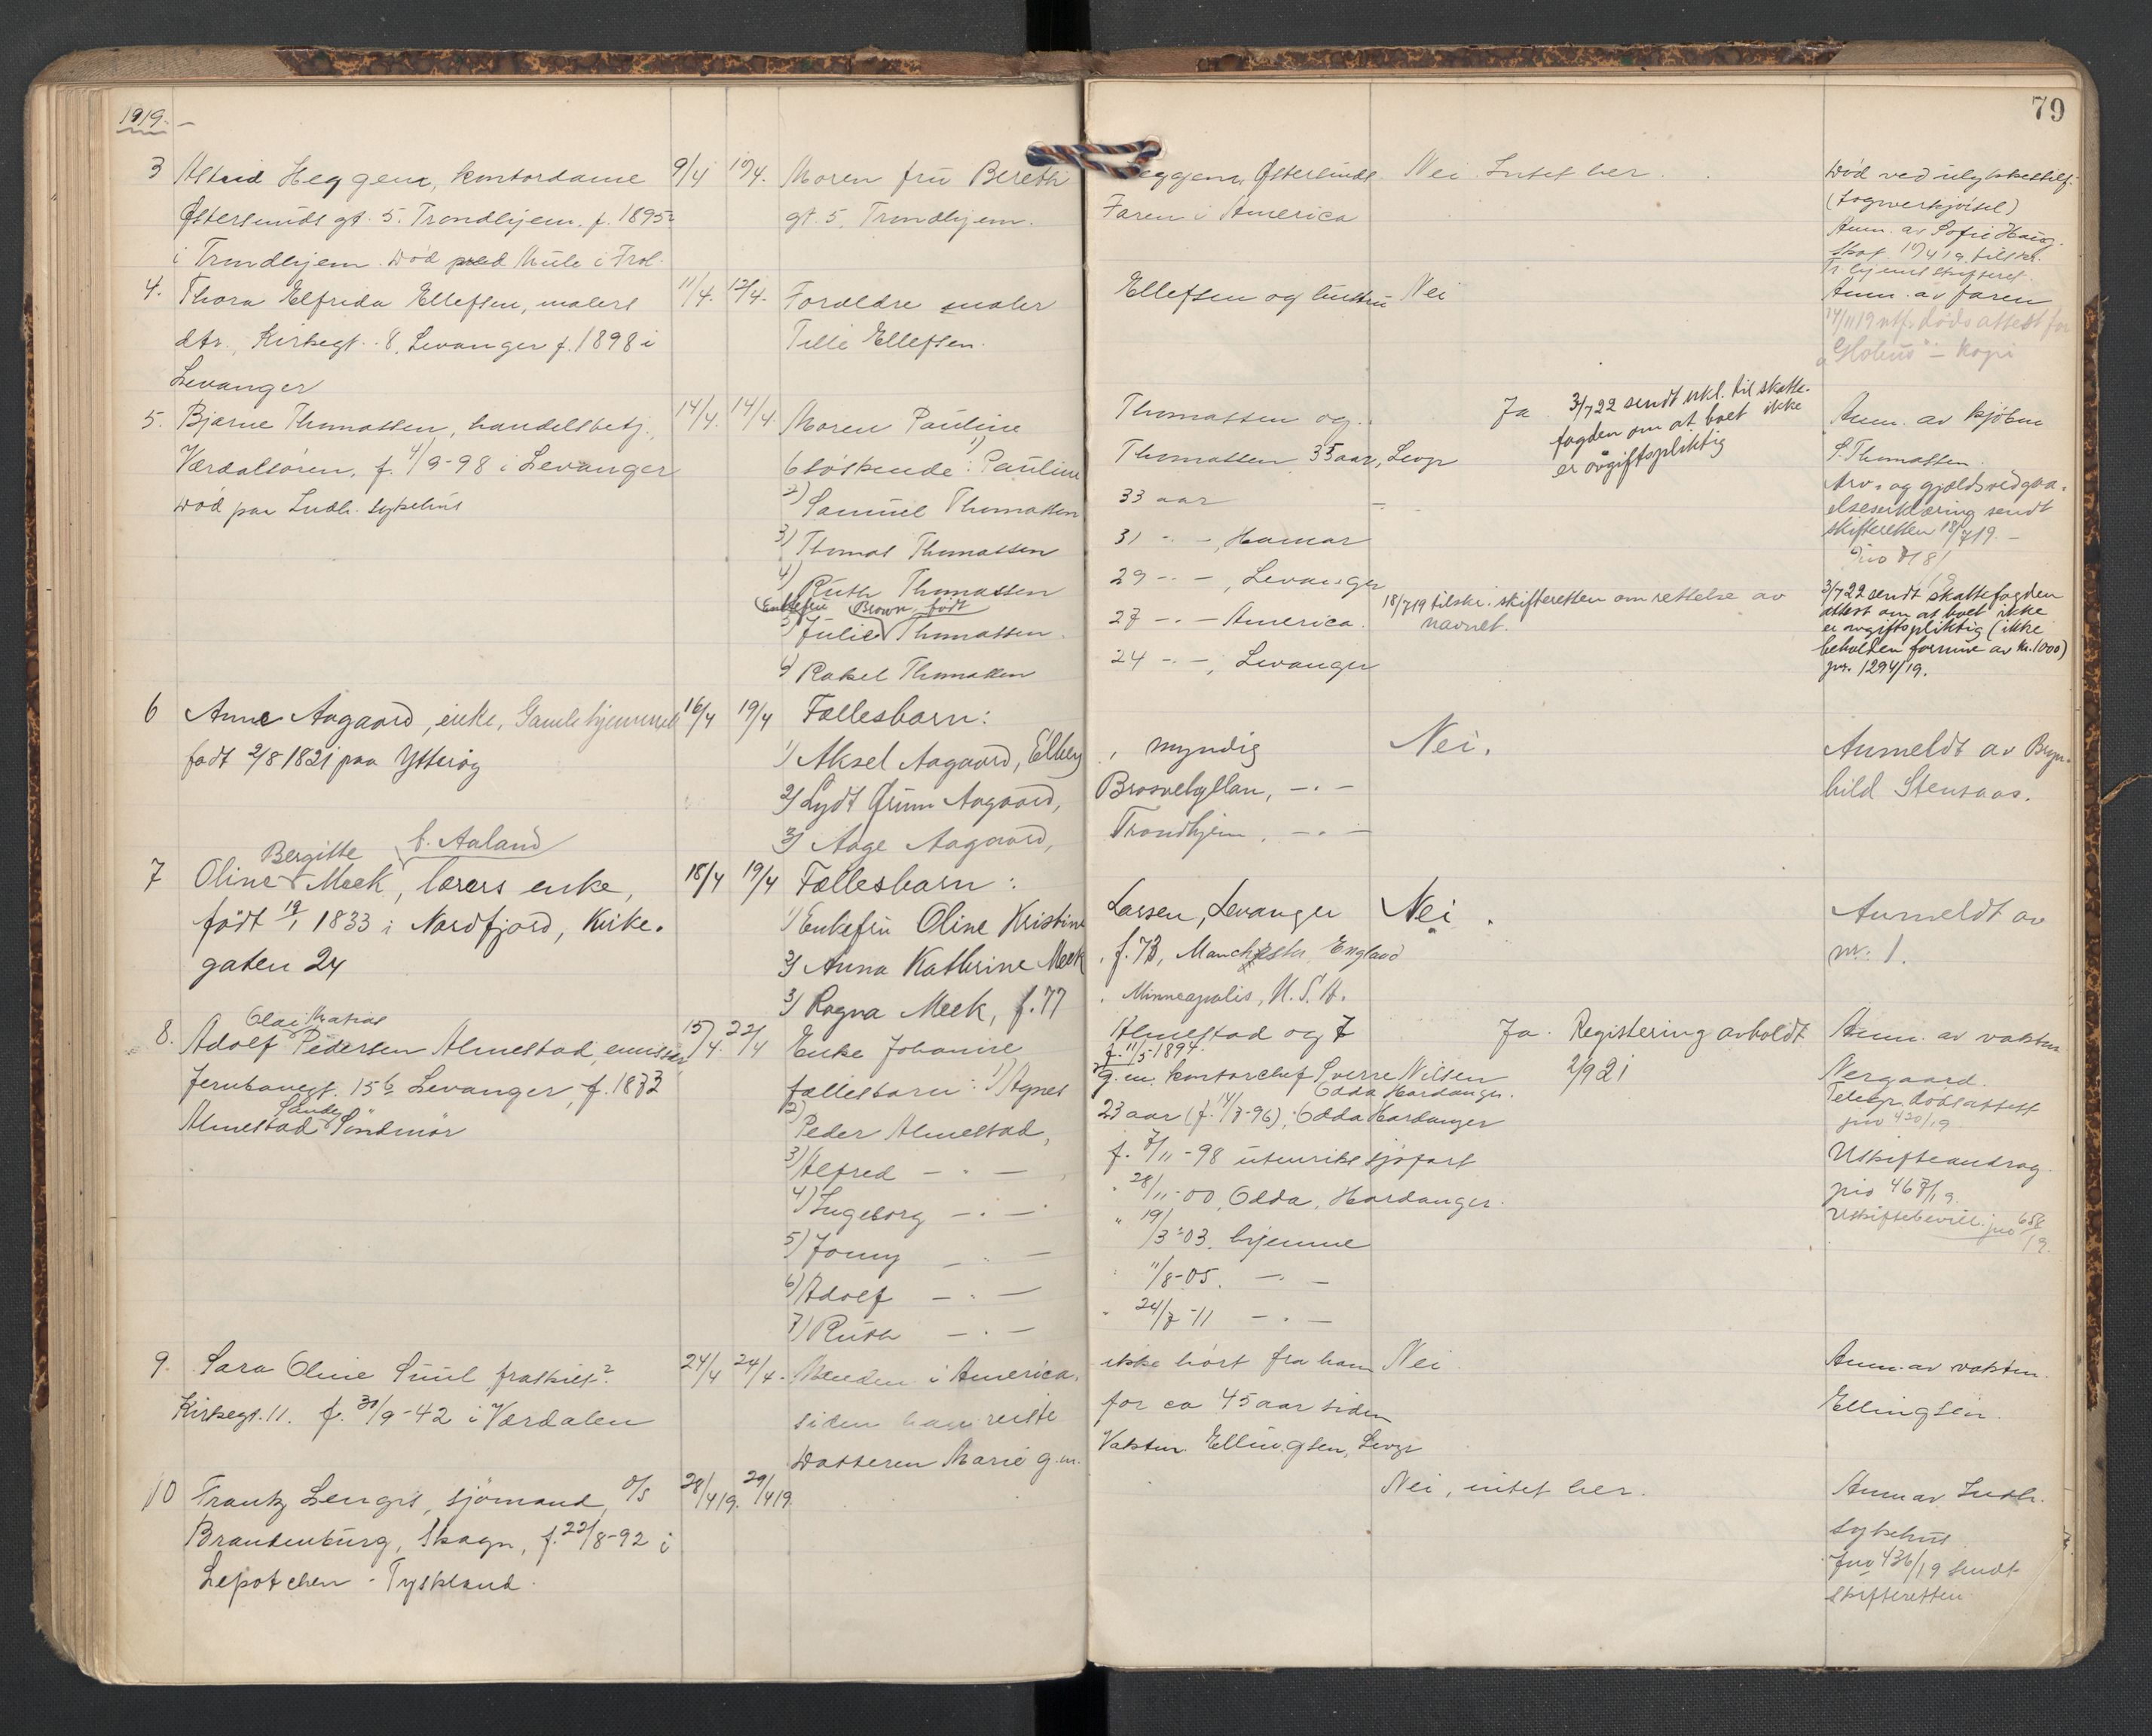 1919. —
79
3 Astrid Heggem, kontordame 9/4 10/4. Moren fru Bereth Heggem, Østersunds Nei. Intet her. Död ved ulykkestilf.
Østersunds gt. 5. Trondhjem. f. 1895 gt. 5. Trondhjem. Faren i America (Togoverkjörsel)
i Trondhjem. Död ved Mule i Frol. Anm. av Sofie Haug.
Skog. 10/4 19 tilskr.
Tr.hjems skifteret.
4. Thora Elfrida Ellefsen, malers 11/4. 12/4. Foreldre maler Ellefsen og hustru Nei Anm. av faren
dtr. Kirkegt. 8, Levanger f. 1898 i Tille Ellefsen. 14/11 19 utf. dödsattest for
Levanger "Globus" – Kopi
5. Bjarne Thomassen, handelsbetj., 14/4. 14/4. Moren Pauline Thomassen og Ja. 3/7 22 sendt erkl. til skatte- Anm. av kjöbm
fogden om at boet ikke
er avgiftspliktig
Værdalsören, f. 4/9-98 i Levanger 6 söskende: 1) Pauline Thomassen 35 aar, Levgr S. Thomassen.
död paa Indh. sykehus 2) Samuel Thomassen 33 aar – Arv- og gjeldsvedgaa-
elseserklæring sendt
3) Thomas Thomassen 31 -"-, Hamar skifteretten 18/7 19. –
4) Ruth Thomassen 29 -"-, Levanger
(Enkefru Brown, født
5) Julie Thomassen. 27 -"- America. 18/7 19 tilskr. skifteretten om rettelse av navnet. 3/7 22 sendt skattefogden
attest om at boet ikke
er avgiftspliktig (ikke
6) Rakel Thomassen 24 -"-, Levanger beholden formue av kr. 1000)
jnr. 1294/19.
6 Anne Aagaard, enke, Gamlehjemmet 16/4 19/4 Fællesbarn:
født 2/8 1821 paa Ytterøy 1) Aksel Aagaard, Elberg, myndig Nei. Anmeldt av Bryn-
2) Lydt Grim Aagaard, Brosvehyllan, -"- hild Stensaas.
3) Aage Aagaard, Trondhjem, -"-
Bergitte f. Aaland
7 Oline Meek, lærers enke, 18/4 19/4 Fællesbarn:
født 19/1 1833 i Nordfjord, Kirke- 1) Enkefru Oline Kristine Larsen, Levanger Nei. Anmeldt av
gaten 24 2) Anna Kathrine Meek, f. 73, Manchester England nr. 1.
3) Ragna Meek, f. 77, Minneapolis, U.S.A.
Olai Matias
8. Adolf Pedersen Almestad, emissær 15/4. 22/4 Enke Johanne Almestad og 7 Ja. Registering avholdt Anm. av vaktm
f. 11/5-1894.
Jernbanegt. 15 b Levanger, f. 1872 fællesbarn: 1) Agnes g.m. kontorchef Sverre Nilsen 2/9 21 Nergaard.
Odda Hardanger.
Almestad Sande Söndmör 2) Peder Almestad, 23 aar (f. 14/3-96), Odda Hardanger Telegr. dödsattest
jno 420/19
3) Alfred -"-, f. 7/11-98 utenriks sjöfart Uskifteandrag
4) Ingeborg -"- " 28/11-00, Odda, Hardanger. jno 467/19.
5) Jonny -"- " 19/3-03. hjemme Uskiftebevill. jno 658/19.
6) Adolf -"- " 11/8-05. -"-
7) Ruth -"- " 24/7-11 -"-
9. Sara Oline Suul fraskilt? 24/4 24/4. Manden i America, ikke hört fra ham Nei Anm. av vaktm.
Kirkegt. 11. f. 30/9-42 i Værdalen siden han reiste for ca 45 aar siden Ellingsen.
Datteren Marie g.m. Vaktm. Ellingsen, Levgr
10 Frantz Lengis, sjömand, D/S 28/4 19. 29/4 19. Nei, intet her. Anm av Indh.
Brandenburg, Skogn, f. 22/8-92 i sykehus
Lepotchen – Tyskland. Jno 436/19 sendt
skifteretten